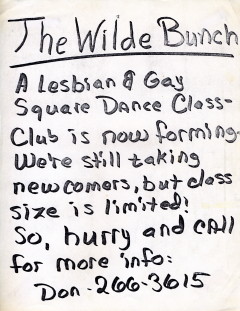 The Wilde Bunch
A Lesbian & Gay
Square Dance Class-
Club is now forming.
We're still taking
newcomers, but class
size is limited!
So, hurry and CAll
for more info:
Don-266-3615